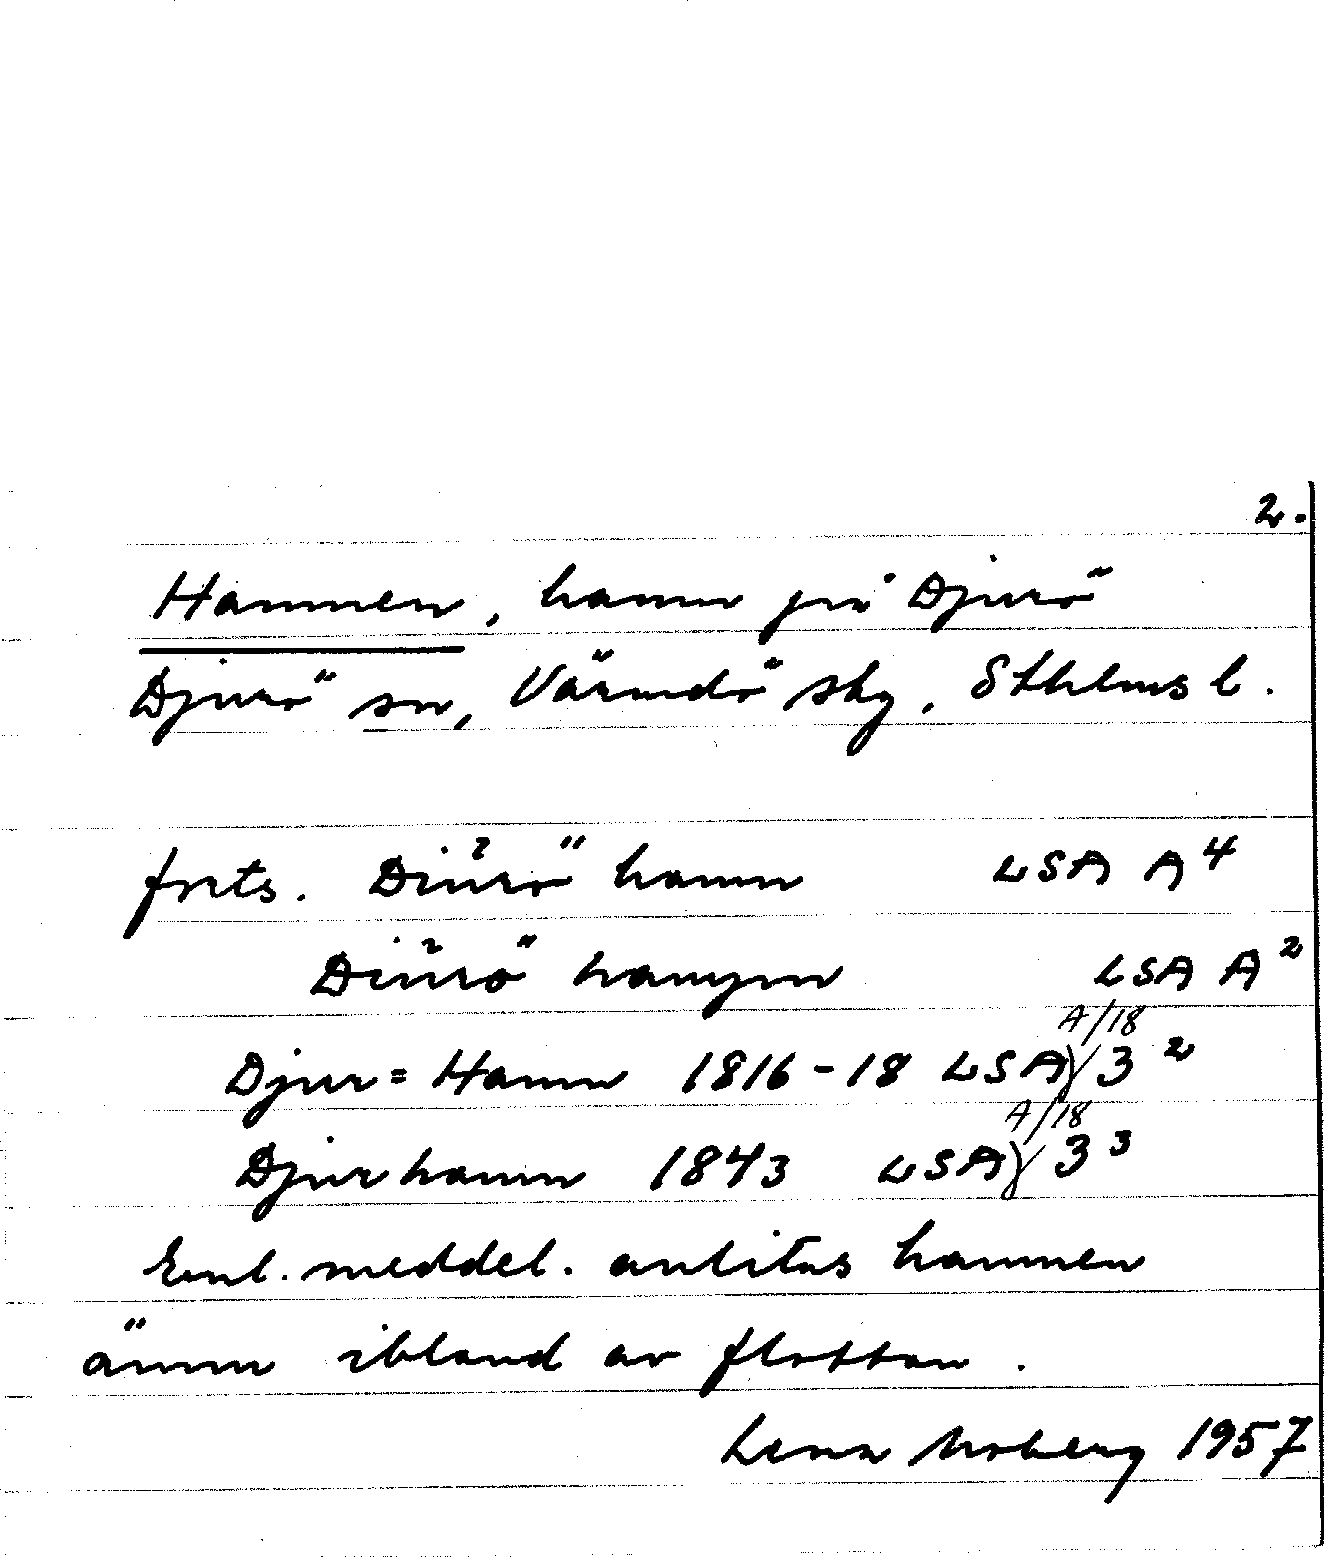 2.
Hamnen, hamn på Djurö
Djurö sn, Värmdö skg, Sthlms l.
forts. Diürö hamn LSA A⁴
Diürö hampn LSA A²
A/18
Djur= Hamn 1816-18 LSA 3²
A/18
Djurhamn 1843 LSA 3³
Enl. meddel. anlitas hamnen
ännu ibland av flottan.
Lena Moberg 1957